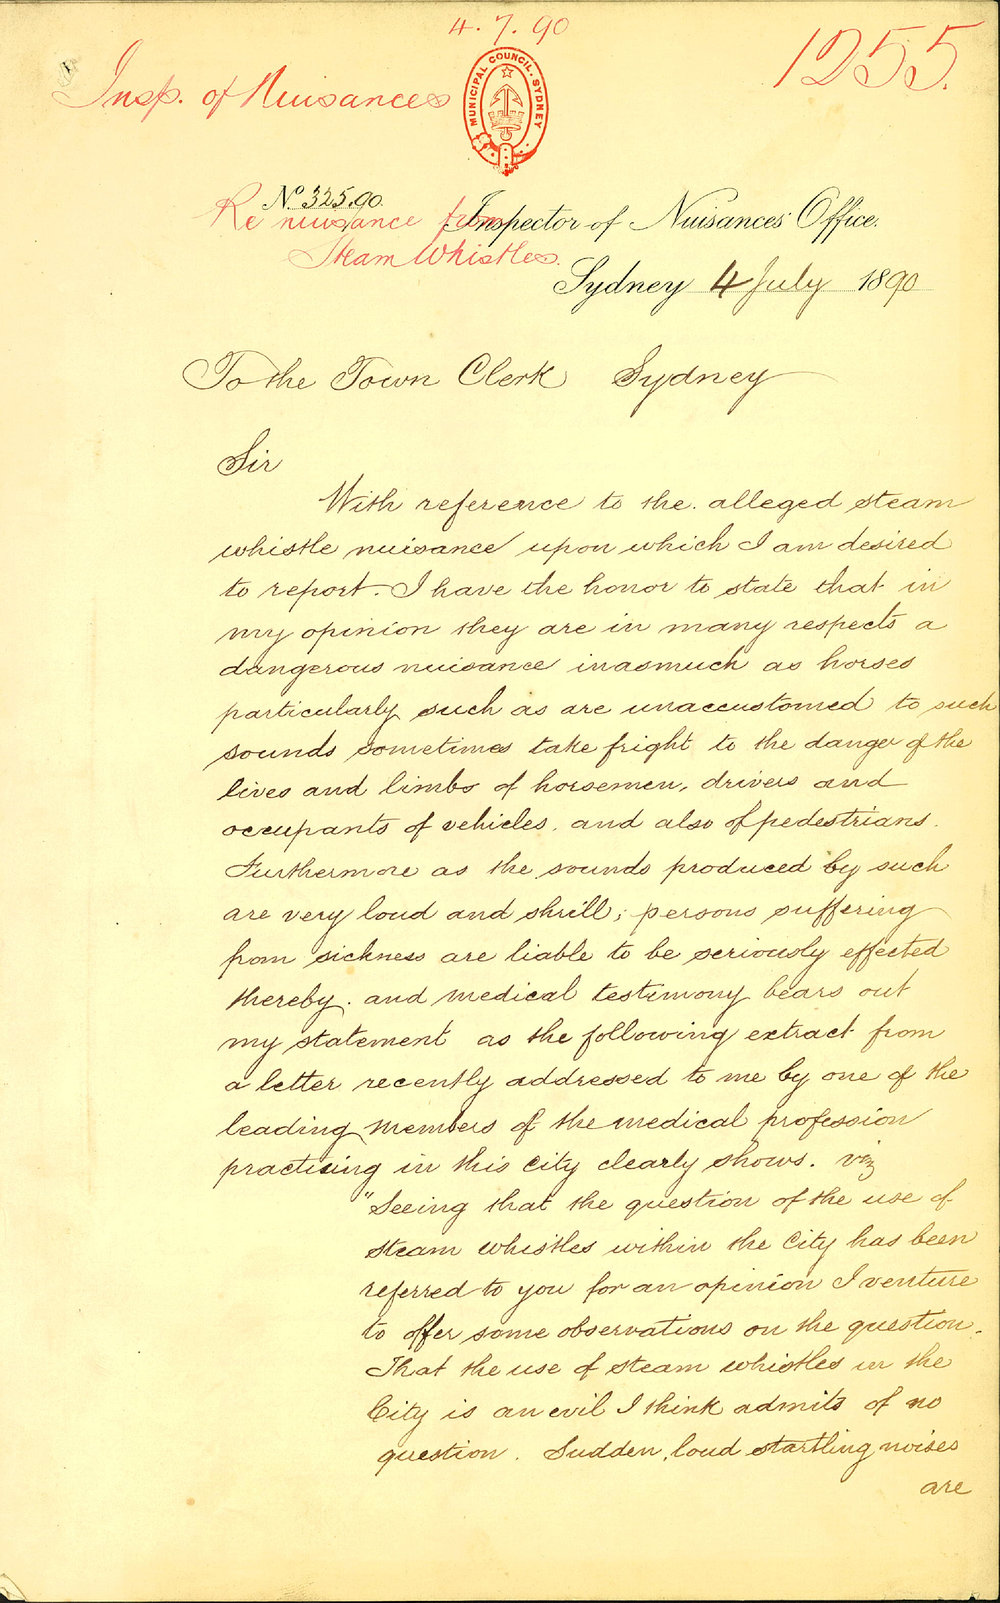 4.7.90
1255.
Insp. of Nuisances
MUNICIPAL COUNCIL. SYDNEY
No 325.90.
Re nuisance from
Steam Whistles.
Inspector of Nuisances' Office.
Sydney 4 July 1890
To the Town Clerk Sydney
Sir
With reference to the alleged steam
whistle nuisance upon which I am desired
to report. I have the honor to state that in
my opinion they are in many respects a
dangerous nuisance inasmuch as horses
particularly such as are unaccustomed to such
sounds sometimes take fright to the danger of the
lives and limbs of horsemen, drivers and
occupants of vehicles, and also of pedestrians.
Furthermore as the sounds produced by such
are very loud and shrill; persons suffering
from sickness are liable to be seriously effected
thereby, and medical testimony bears out
my statement as the following extract from
a letter recently addressed to me by one of the
leading members of the medical profession
practising in this City clearly shows. viz
"Seeing that the question of the use of
steam whistles within the City has been
referred to you for an opinion I venture
to offer some observations on the question.
That the use of steam whistles in the
City is an evil I think admits of no
question. Sudden, loud startling noises
are